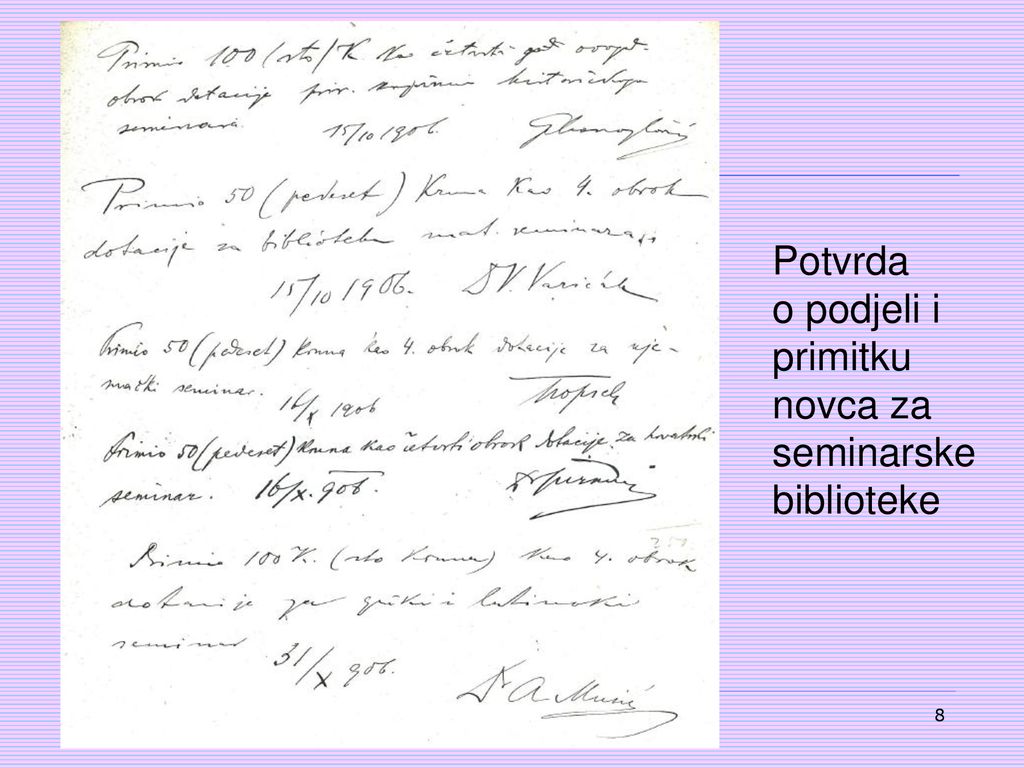 Primio 100 (sto) K kao četvrti god. ovogod.
obrok dotacije historičkoga
seminara. 15/10 1906.
Primio 50 (pedeset) Kruna kao 4. obrok
dotacije za biblioteku mat. seminara
15/10 1906. Dr V. Varićak
Primio 50 (pedeset) kruna kao 4. obrok dotacije za nje-
mački seminar. 16/X 1906 Tropsch
Primio 50 (pedeset) kruna kao četvrti obrok dotacije za hrvatski
seminar. 16/X. 906.
Primio 100 K. (sto kruna) kao 4. obrok
dotacije za grčki i latinski
seminar 31/X 906.
Dr A Musić
Potvrda
o podjeli i
primitku
novca za
seminarske
biblioteke
8